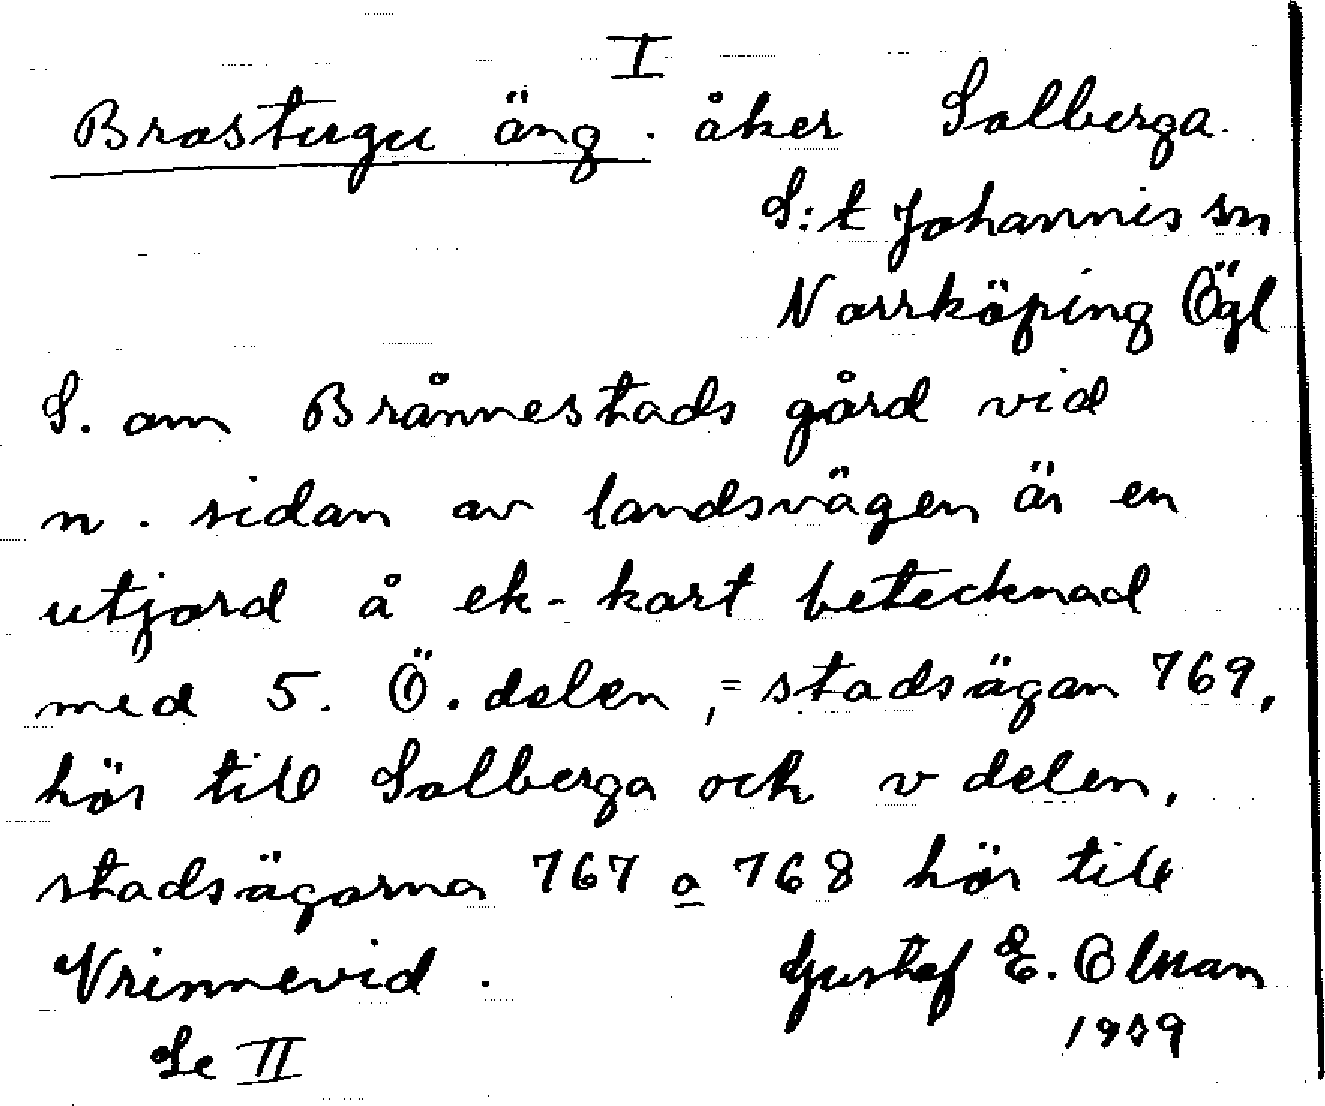 I
Brosturgu äng. åker Solberga.
S:t Johannis sn
Norrköping Ögl
S. om Brånnestads gård vid
n. sidan av landsvägen är en
utjord å ek-kart betecknad
med 5. Ö. delen, = stadsägan 769,
hör till Solberga och v delen,
stadsägorna 767 o 768 hör till
Vrinnevid.
Gustaf E. Olman
19
Se II